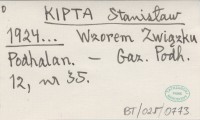 KIPTA Stanisław
1924... Wzorem Związku
Podhalan. — Gaz. Podh.
12, nr 35.
BT/028/0773